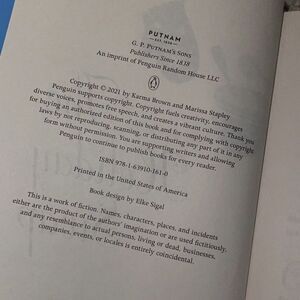 PUTNAM
EST. 1838
G. P. PUTNAM'S SONS
Publishers Since 1838
An imprint of Penguin Random House LLC
Copyright © 2021 by Karma Brown and Marissa Stapley
Penguin supports copyright. Copyright fuels creativity, encourages
diverse voices, promotes free speech, and creates a vibrant culture. Thank you
for buying an authorized edition of this book and for complying with copyright
laws by not reproducing, scanning, or distributing any part of it in any
form without permission. You are supporting writers and allowing
Penguin to continue to publish books for every reader.
ISBN 978-1-63910-161-0
Printed in the United States of America
Book design by Elke Sigal
This is a work of fiction. Names, characters, places, and incidents
either are the product of the authors' imagination or are used fictitiously,
and any resemblance to actual persons, living or dead, businesses,
companies, events, or locales is entirely coincidental.